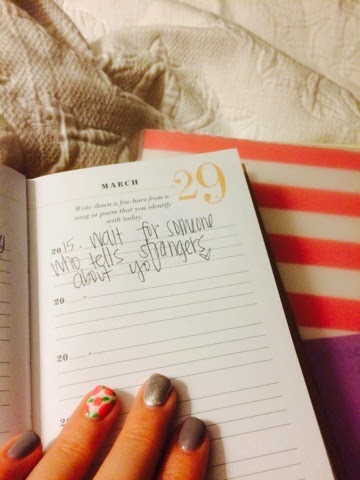 MARCH
29
Write down a few lines from a
song or poem that you identify
with today.
2015. Wait for someone
who tells strangers
about you
20
20